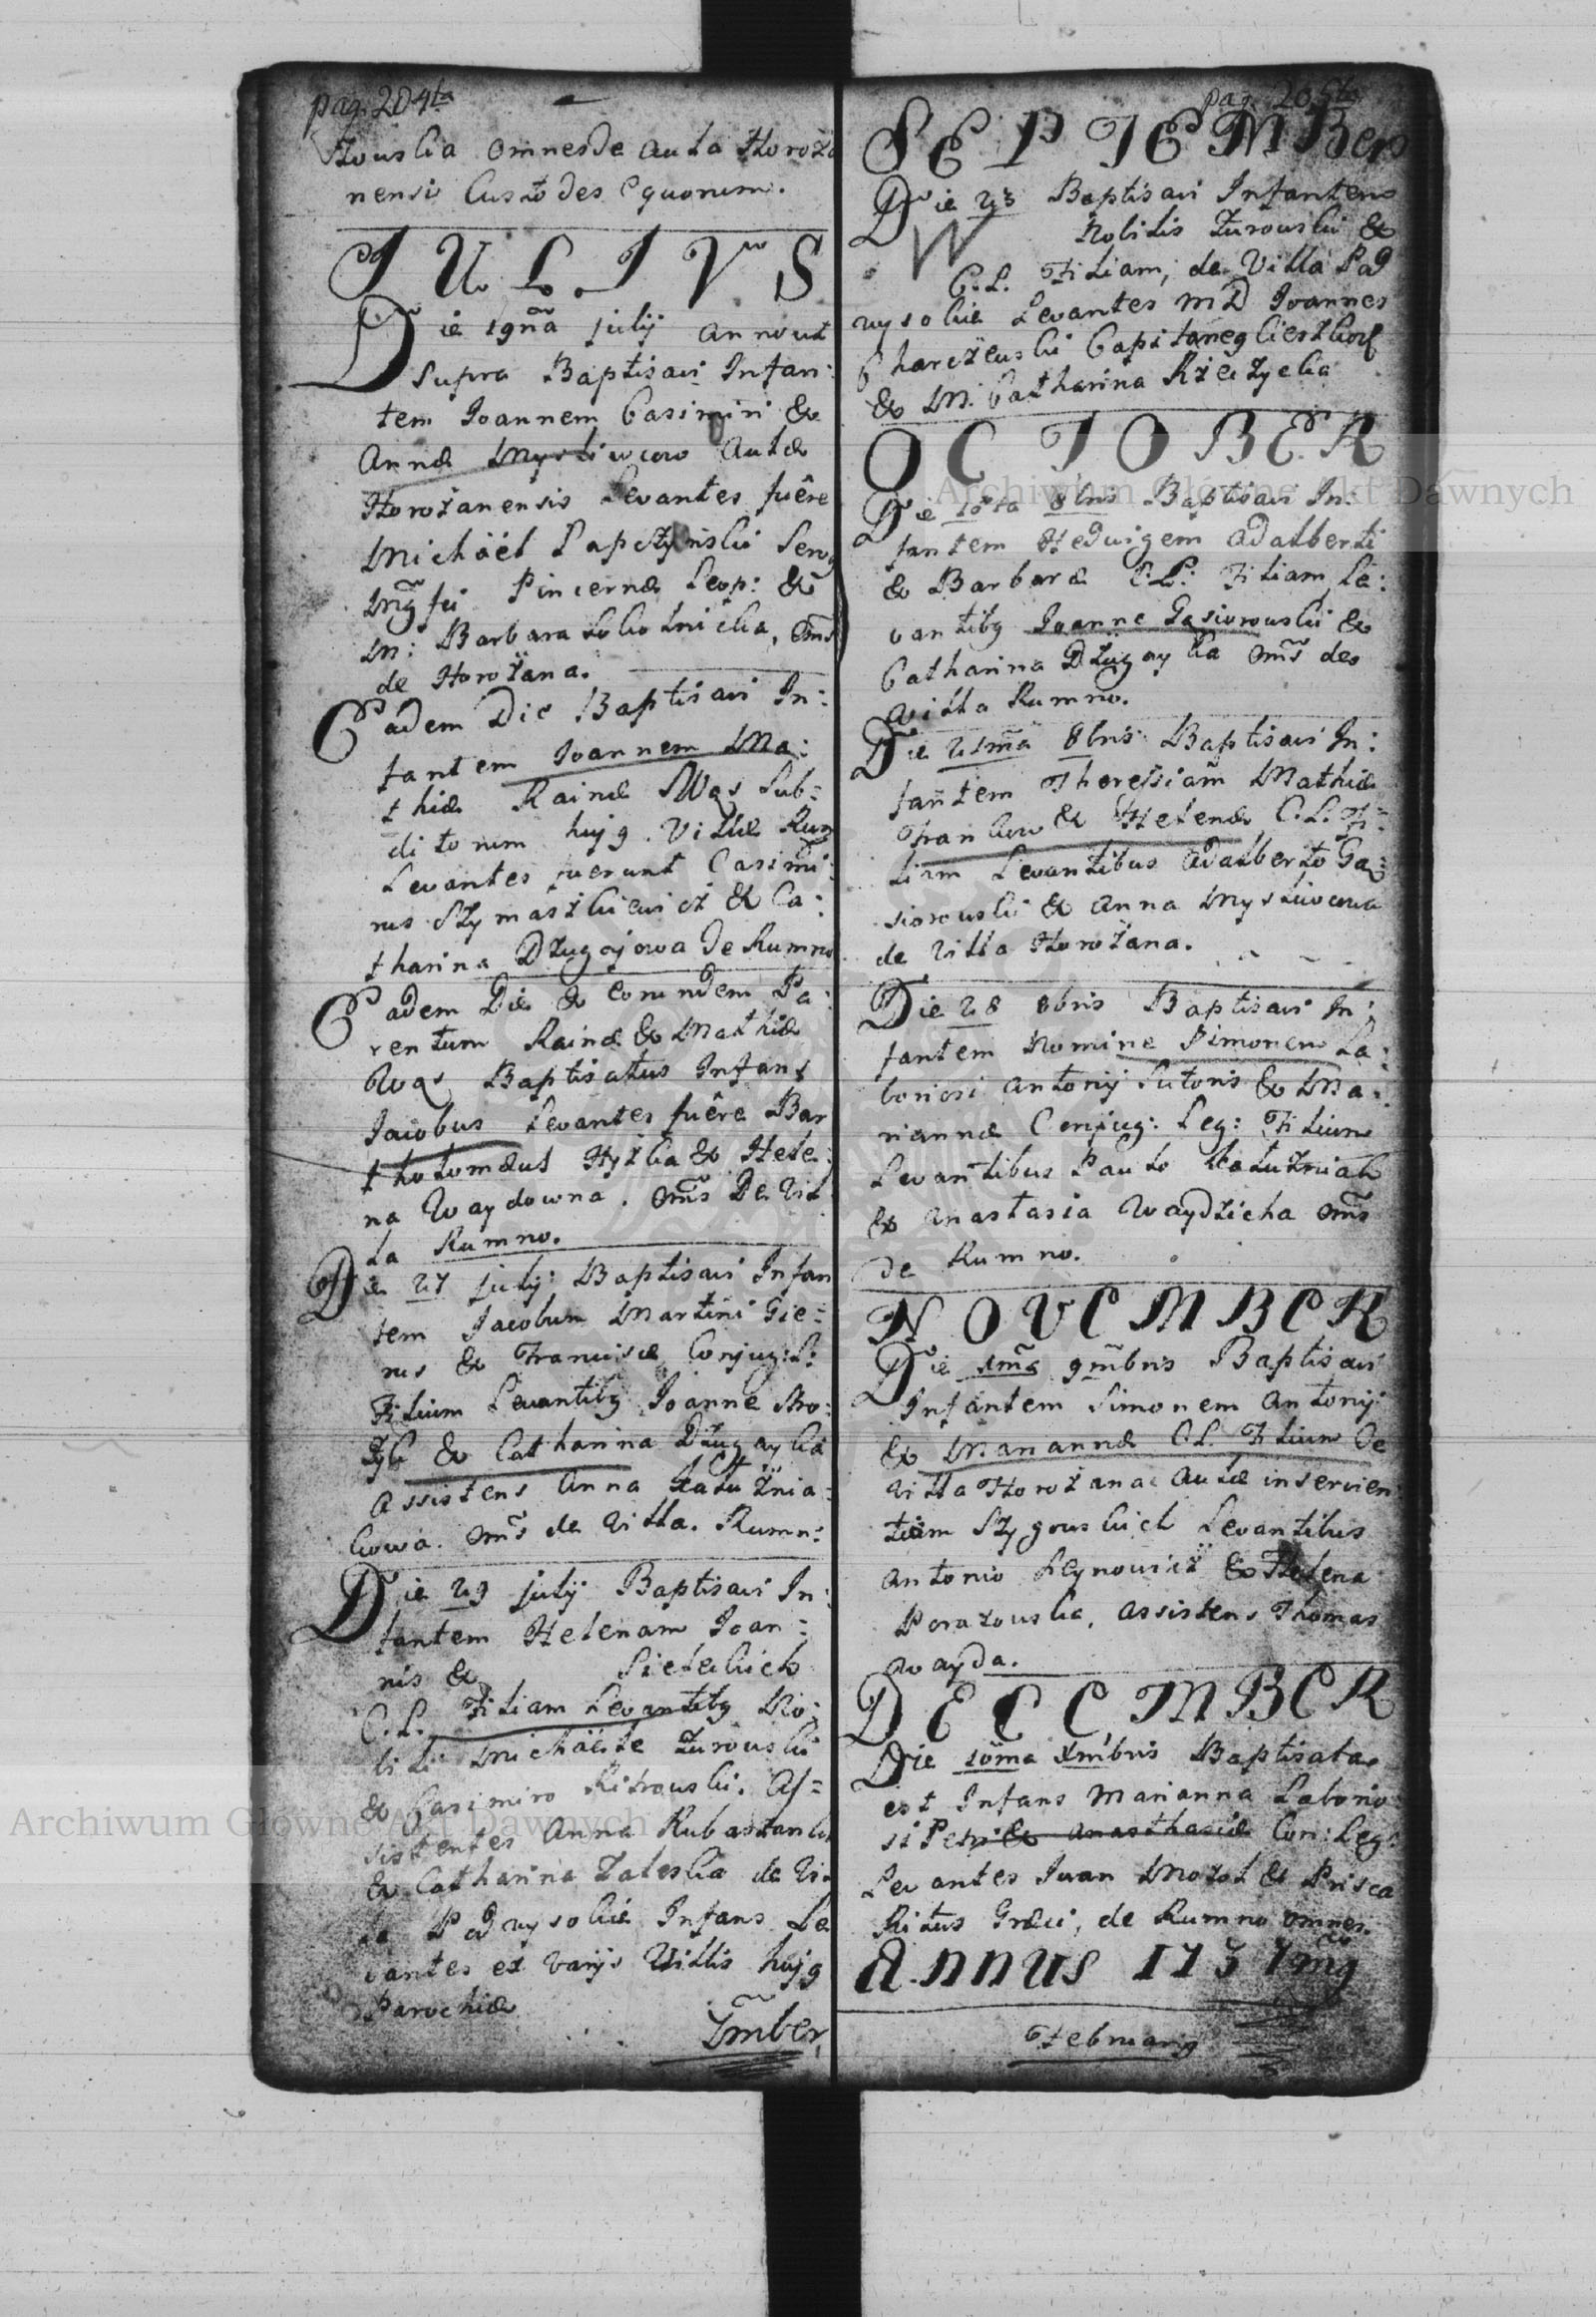 pag. 204ta
Stouska omnes de aula Horoża
nensi Custodes Equorum.
JULIVS
Die 19na julij anno ut
supra Baptisavi Infan:
tem Joannem Casimiri &
Annæ Mysliwcow Aulæ
Horożanensis Levantes fuêre
Michäel Papczynski
Pincernæ Leop: &
M: Barbara omnes
de Horożana.
Eadem Die Baptisavi In:
fantem Joannem Ma:
thiæ Rainæ Wąs Sub=
ditorum huj9 Villæ Rum
Levantes fuerunt Casimi:
rus Szymaszkiewicz & Ca:
tharina Dźugajowa de Rumno
Eadem Die & eorundem Pa:
rentum Rainæ & Mathiæ
Wąs Baptisatus Infans
Jacobus Levantes fuêre Bar
tholomæus Hyżka & Hele:
na Waydowna. oms De Vil
la Rumno.
Die 27 julij: Baptisavi Infan
tem Jacobum Martini Gie=
rus & Franciscæ Conjug: L:
Filium Levantib9 Joanne Mro:
zik & Catharina Dźugayka
Assistens Anna Hałuźnia=
kowa. oms de Villa. Rumn:
Die 29 julij Baptisavi In:
fantem Helenam Joan=
nis & Sieleckich
C. L. Filiam Levantib9 No:
bili Michäele Żurowski
& Casimiro Kitrowski. As=
sistentes Anna
& Catharina Zaleska de Vil
la Podwysokie Infans Le
vantes ex varijs Villis huj9
Parochiæ
7mber
pag. 205ta
SEPTEMBer
Die 23 Baptisavi Infantem
Nobilis Żurowski &
C. L. Filiam, de Villa Pod
wysokie Levantes MD Joannes
Charczewski
& M. Catharina
OCTOBER
Die 8bris Baptisavi In:
fantem Hedvigem Adalberti
& Barbaræ C: L: Filiam Le:
vantib9 Joanne Gąsiorowski &
Catharina Dźugayka oms de
Villa Rumno.
Die 21ma 8bris Baptisavi In:
fantem Theressiam Mathiæ
Frankow & Helenæ C. L. Fi=
liam Levantibus Adalberto Gą=
siorowski & Anna Mysliwcowa
de Villa Horożana.
Die 28 8bris Baptisavi In:
fantem Nomine Simonem La:
boriosi Antonij Sutoris & Ma:
riannæ Conjug: Leg: Filium
Levantibus Paulo Hałuźniak
& Anastasia Waydzicha oms
de Rumno.
NOVEMBER
Die 1ma 9mbris Baptisavi
Infantem Simonem Antonij
& Mariannæ C L. Filium De
Villa Horożanae Aulæ inservien
tium Levantibus
Antonio & Helena
Porazowska, Assistens Thomas
Wayda.
DECEMBER
Die 10ma Xmbris Baptisata
est Infans Marianna Laborio
si Petri & Anasthasiæ Con: Leg:
Levantes Iwan Mozol & Prisca
Ritus Græci, de Rumno omnes.
Annus 1737mus
Februarij
Archiwum Główne Akt Dawnych
Archiwum Główne Akt Dawnych